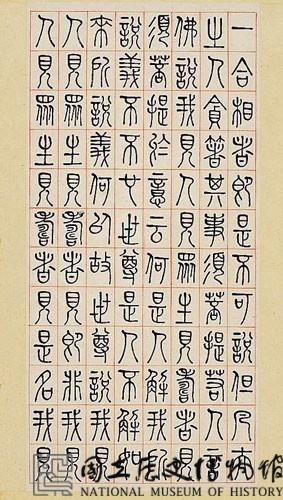 一合相者即是不可說但凡夫
之人貪著其事須菩提若人言
佛說我見人見眾生見壽者見
須菩提於意云何是人解我所
說義不不也世尊是人不解如
來所說義何以故世尊說我見
人見眾生見壽者見即非我見
人見眾生見壽者見是名我見
國立歷史博物館
NATIONAL MUSEUM OF HISTORY